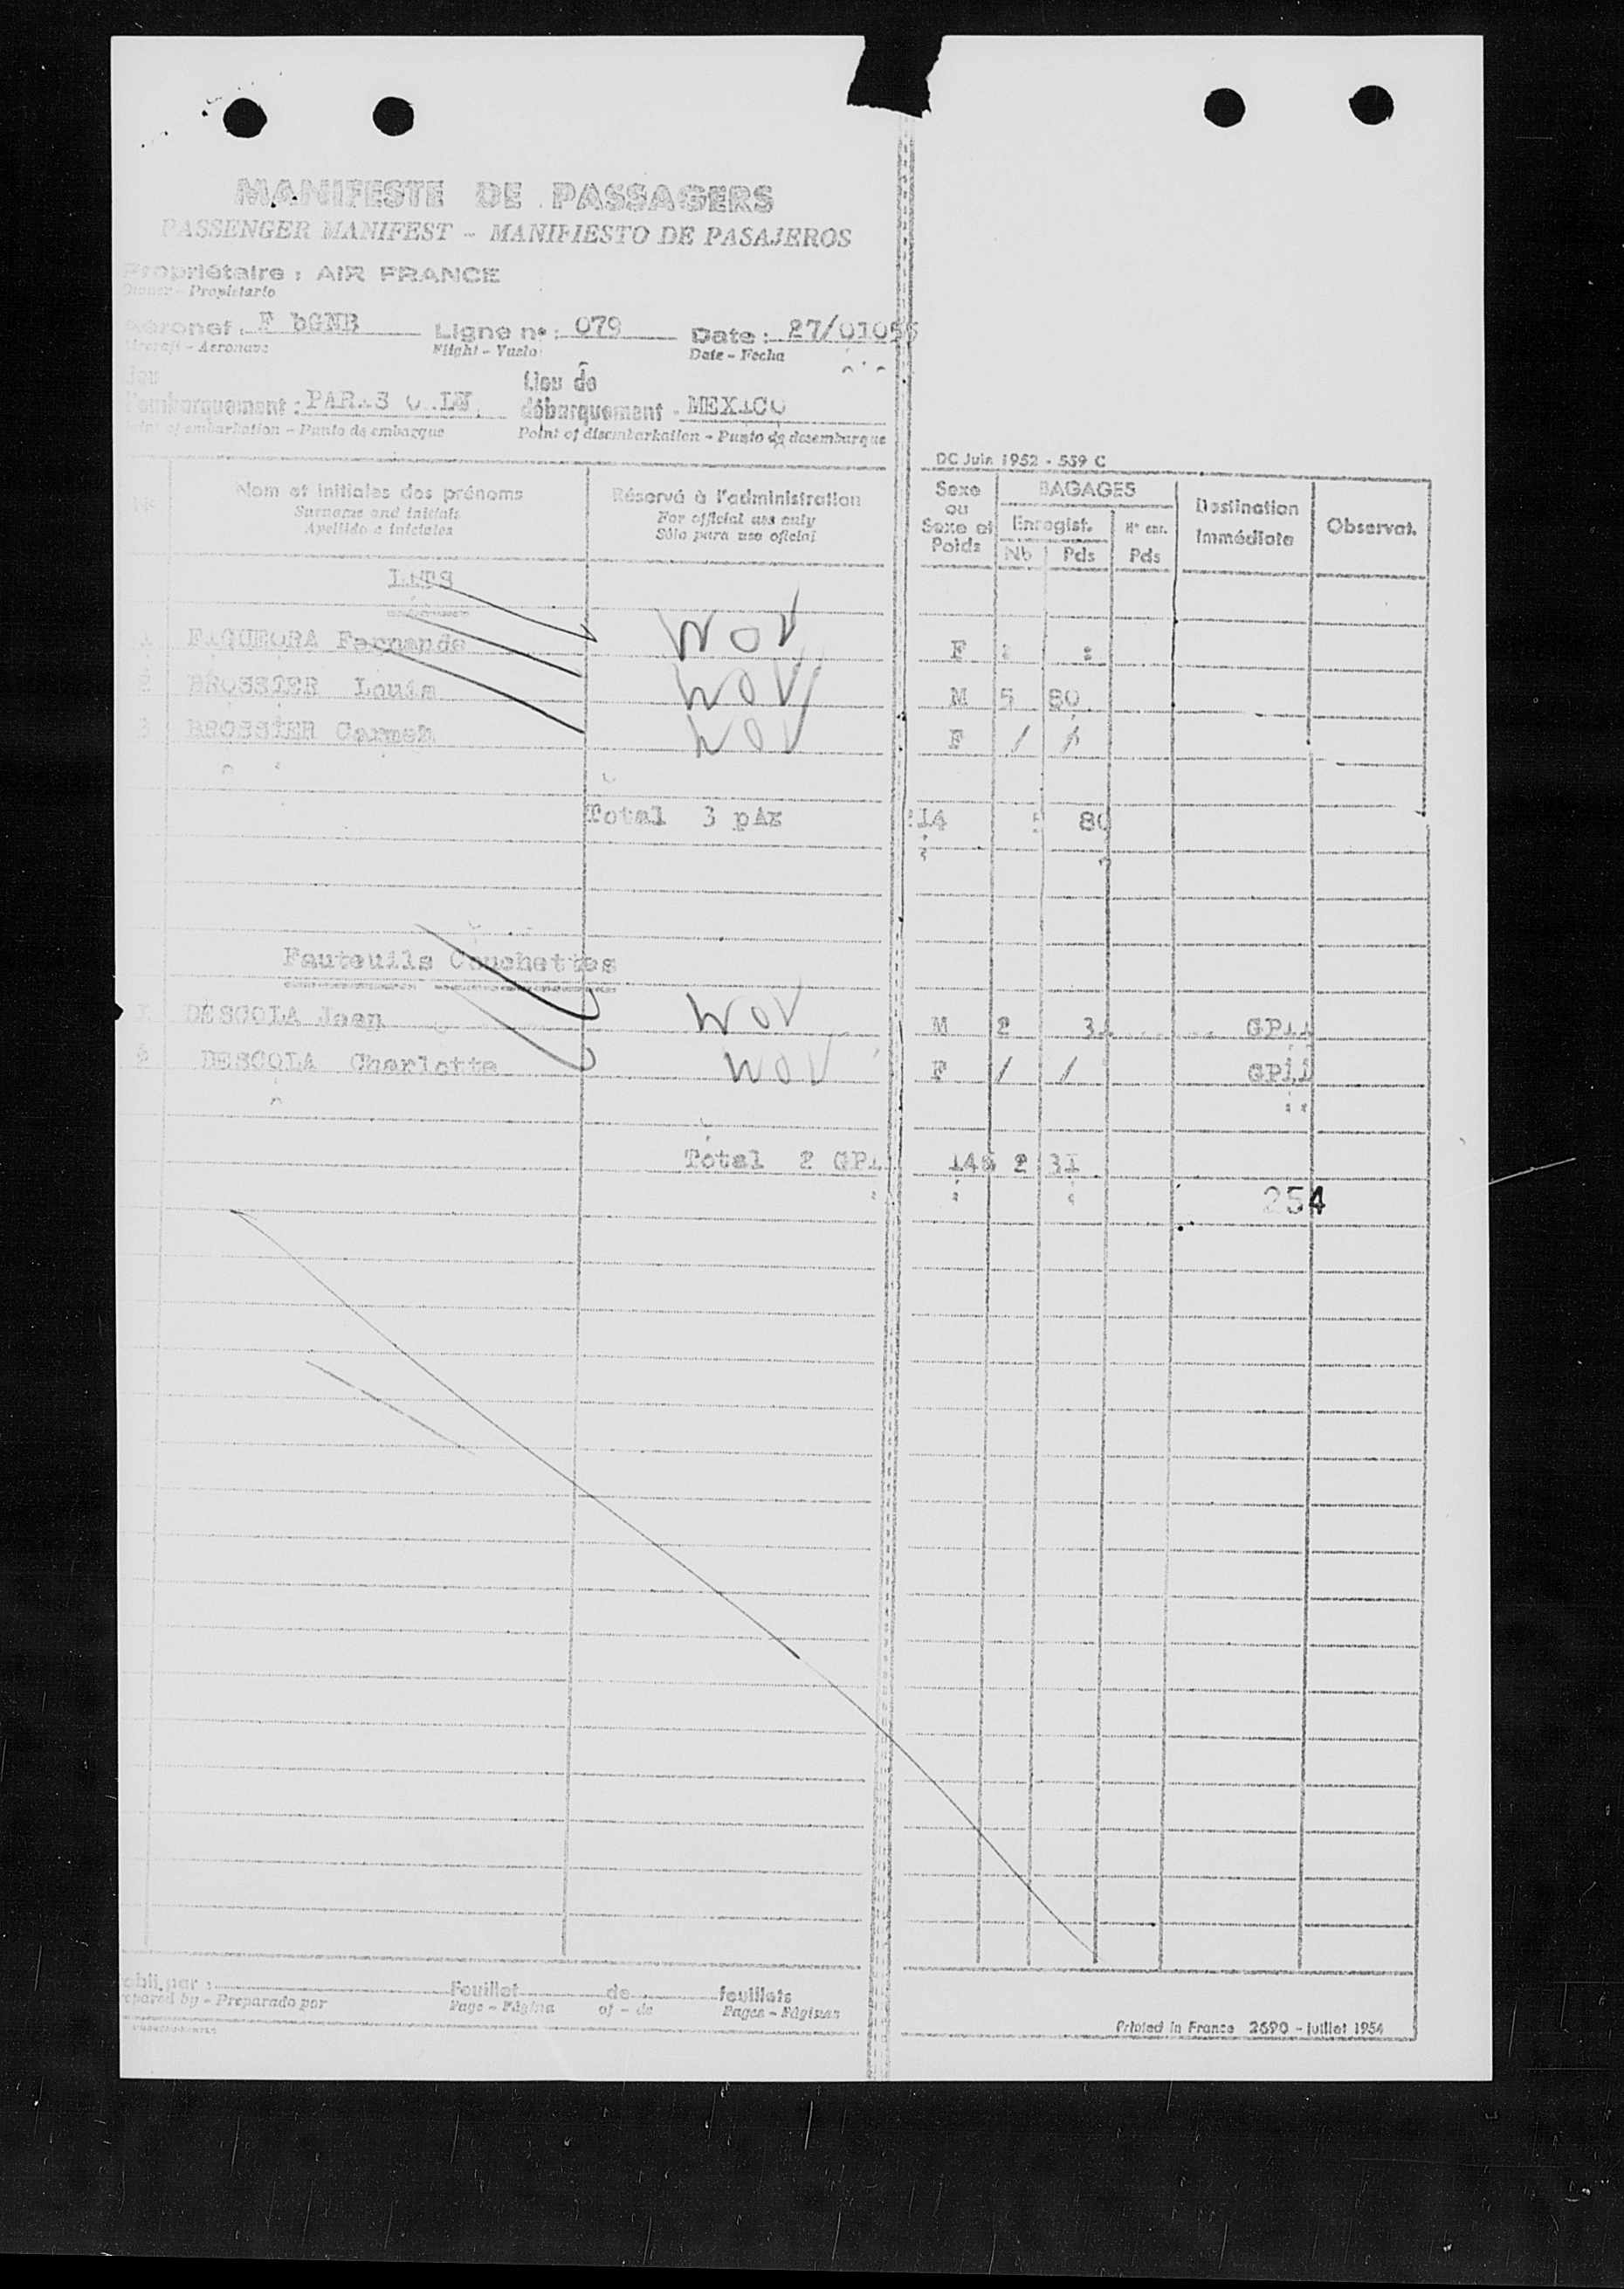 MANIFESTE DE PASSAGERS
PASSENGER MANIFEST - MANIFIESTO DE PASAJEROS
Propriétaire : AIR FRANCE
Owner - Propietario
Aéronef : F bGNB Ligne n° : 079 Date : 27/01055
Aircraft - Aeronave Flight - Vuelo Date - Fecha
Lieu de
d'embarquement : débarquement : MEXICO
Point of embarkation - Punto de embarque Point of disembarkation - Punto de desembarque
DC Juin 1952 - 559 C
Nom et initiales des prénoms Réservé à l'administration Sexe BAGAGES Destination Observat.
Surname and initials For official use only ou Enregist. N° enr. Immédiate
Apellido e iniciales Sólo para uso oficial Sexe et Poids Nb Pds Pds
LITS
Fernande WOV F
2 BROSSIER Louis WOV M 5 80
3 BROSSIER Carmen WOV F / /
Total 3 pAx 80
Fauteuils Couchettes
DESCOLA Jean WOV M 2 31
DESCOLA Charlotte WOV F / /
Total 2 2 31
254
Etabli par : Feuillet de feuillets
Prepared by - Preparado por Page - Página of - de Pages - Páginas
Printed in France 2690 - juillet 1954